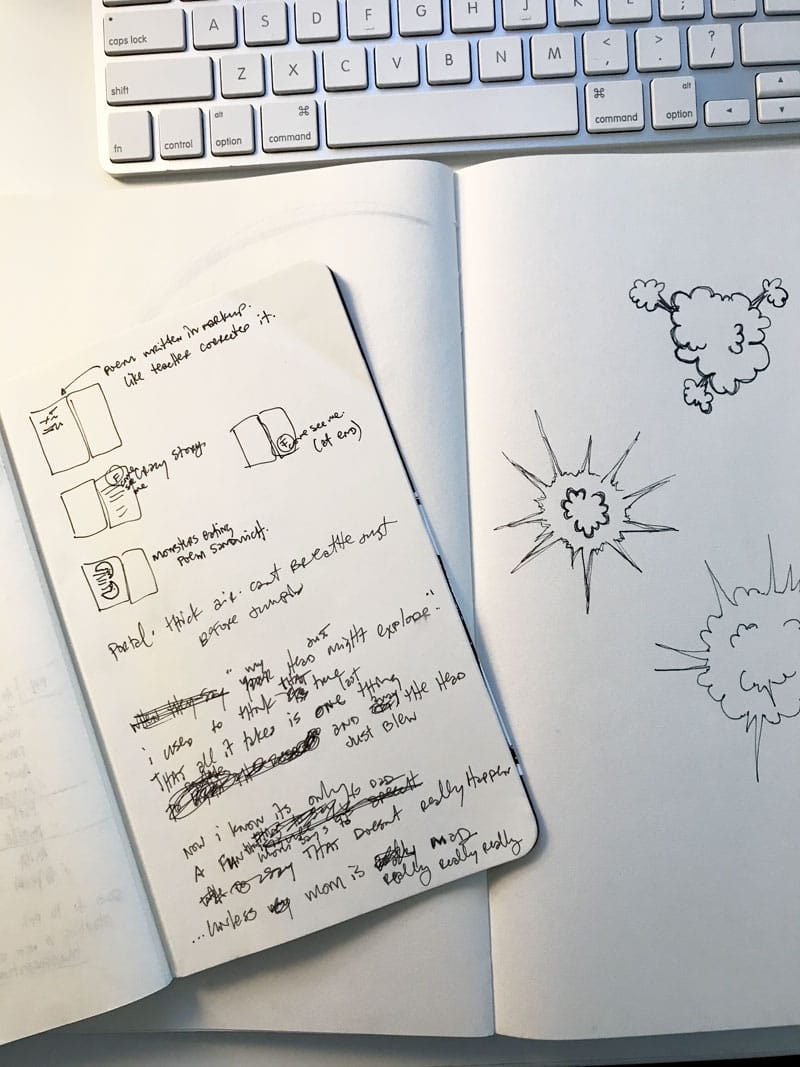 caps lock
A
S
D
F
G
H
J
K
L
;
shift
Z
X
C
V
B
N
M
<
,
>
.
?
/
fn
control
alt
option
⌘
command
⌘
command
alt
option
poem written in markup.
like teacher corrected it.
crazy story.
me
F
see me.
(at end)
monsters eating
poem sandwich.
Portal: thick air. cant breathe just
before jumping
"my just
head might explode."
i used to think that true
THAT all it takes is one last thing
and the head
just blew
Now i know its only
A fun
say THAT doesnt really happen
...unless mom is mad
really really really